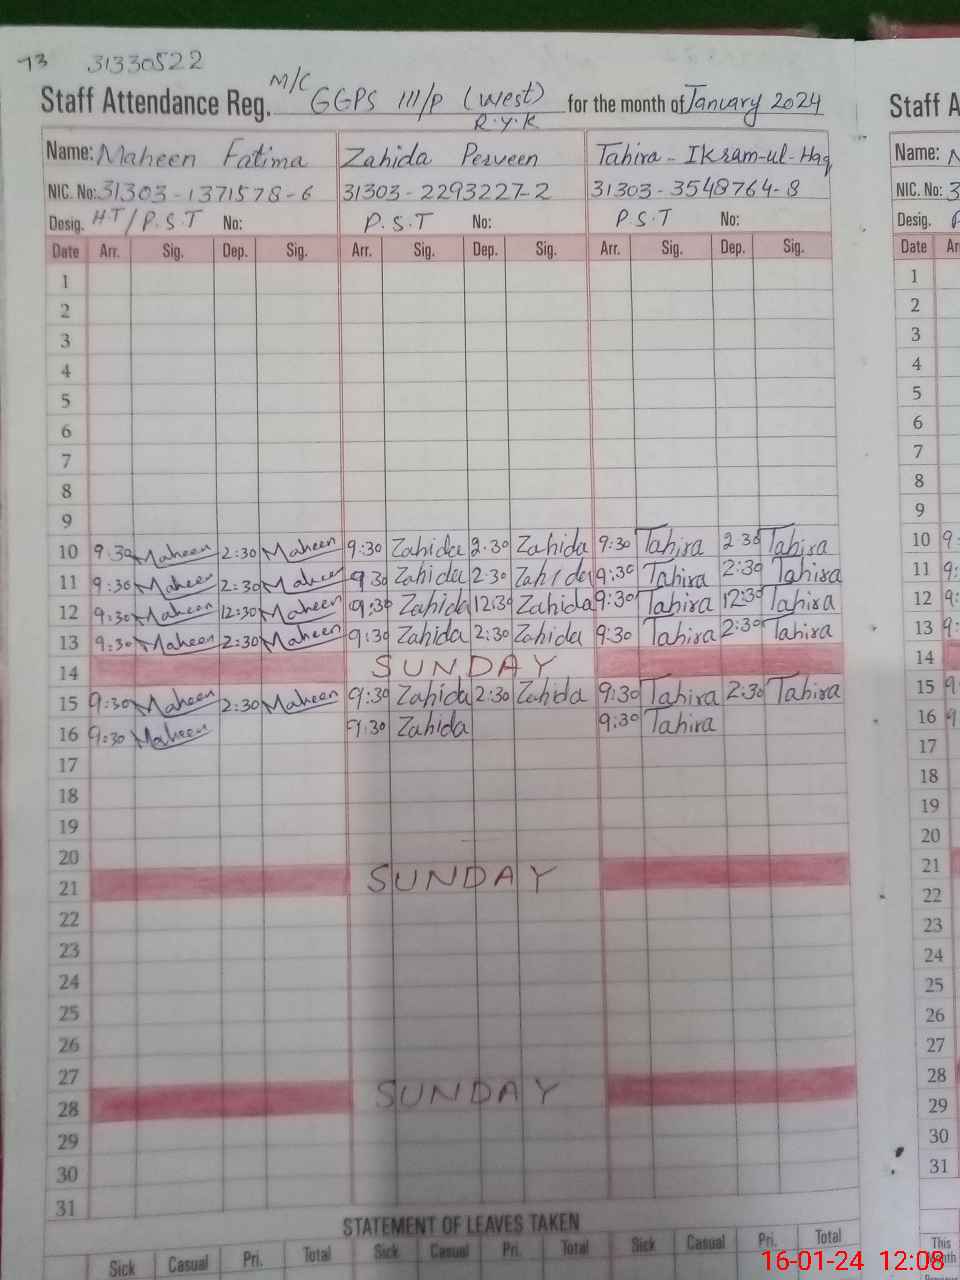 73 31330522
Staff Attendance Reg. M/C GGPS III/P (West) R.Y.K for the month of January 2024
Name: Maheen Fatima Zahida Perveen Tahira - Ikram-ul-Haq
NIC. No: 31303-1371578-6 31303-2293227-2 31303-3548764-8
Desig. HT/P.S.T No: P.S.T No: P.S.T No:
Date Arr. Sig. Dep. Sig. Arr. Sig. Dep. Sig. Arr. Sig. Dep. Sig.
1
2
3
4
5
6
7
8
9
10 9:30 Maheen 2:30 Maheen 9:30 Zahida 2:30 Zahida 9:30 Tahira 2:30 Tahira
11 9:30 Maheen 2:30 Maheen 9:30 Zahida 2:30 Zahida 9:30 Tahira 2:30 Tahira
12 9:30 Maheen 12:30 Maheen 9:30 Zahida 12:30 Zahida 9:30 Tahira 12:30 Tahira
13 9:30 Maheen 2:30 Maheen 9:30 Zahida 2:30 Zahida 9:30 Tahira 2:30 Tahira
14 SUNDAY
15 9:30 Maheen 2:30 Maheen 9:30 Zahida 2:30 Zahida 9:30 Tahira 2:30 Tahira
16 9:30 Maheen 9:30 Zahida 9:30 Tahira
17
18
19
20
21 SUNDAY
22
23
24
25
26
27
28 SUNDAY
29
30
31
STATEMENT OF LEAVES TAKEN
Sick Casual Pri. Total Sick Casual Pri. Total Sick Casual Pri. Total
Staff A
Name:
NIC. No: 3
Desig.
Date
1
2
3
4
5
6
7
8
9
10 9:
11 9:
12 9:
13 9:
14
15 9
16 9
17
18
19
20
21
22
23
24
25
26
27
28
29
30
31
This
Month
16-01-24 12:08